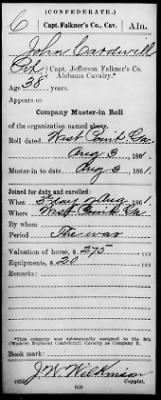 (CONFEDERATE.)
6 Capt. Falkner's Co., Cav. Ala.
John Cardwill
Pvt, Capt. Jefferson Falkner's Co.
Alabama Cavalry.*
Age 38 years.
Appears on
Company Muster-in Roll
of the organization named above,
Roll dated West Point Ga.
Aug 3, 1861
Muster-in to date Aug 3, 1861
Joined for duty and enrolled:
When 3d day of Aug, 1861
Where West Point Ga.
By whom
Period The war
Valuation of horse, $ 275
Equipments, $ 20
Remarks:
*This company was subsequently assigned to the 8th
(Wade's) Regiment Confederate Cavalry as Company
Book mark:
J. W. Wilkinson
Copyist.